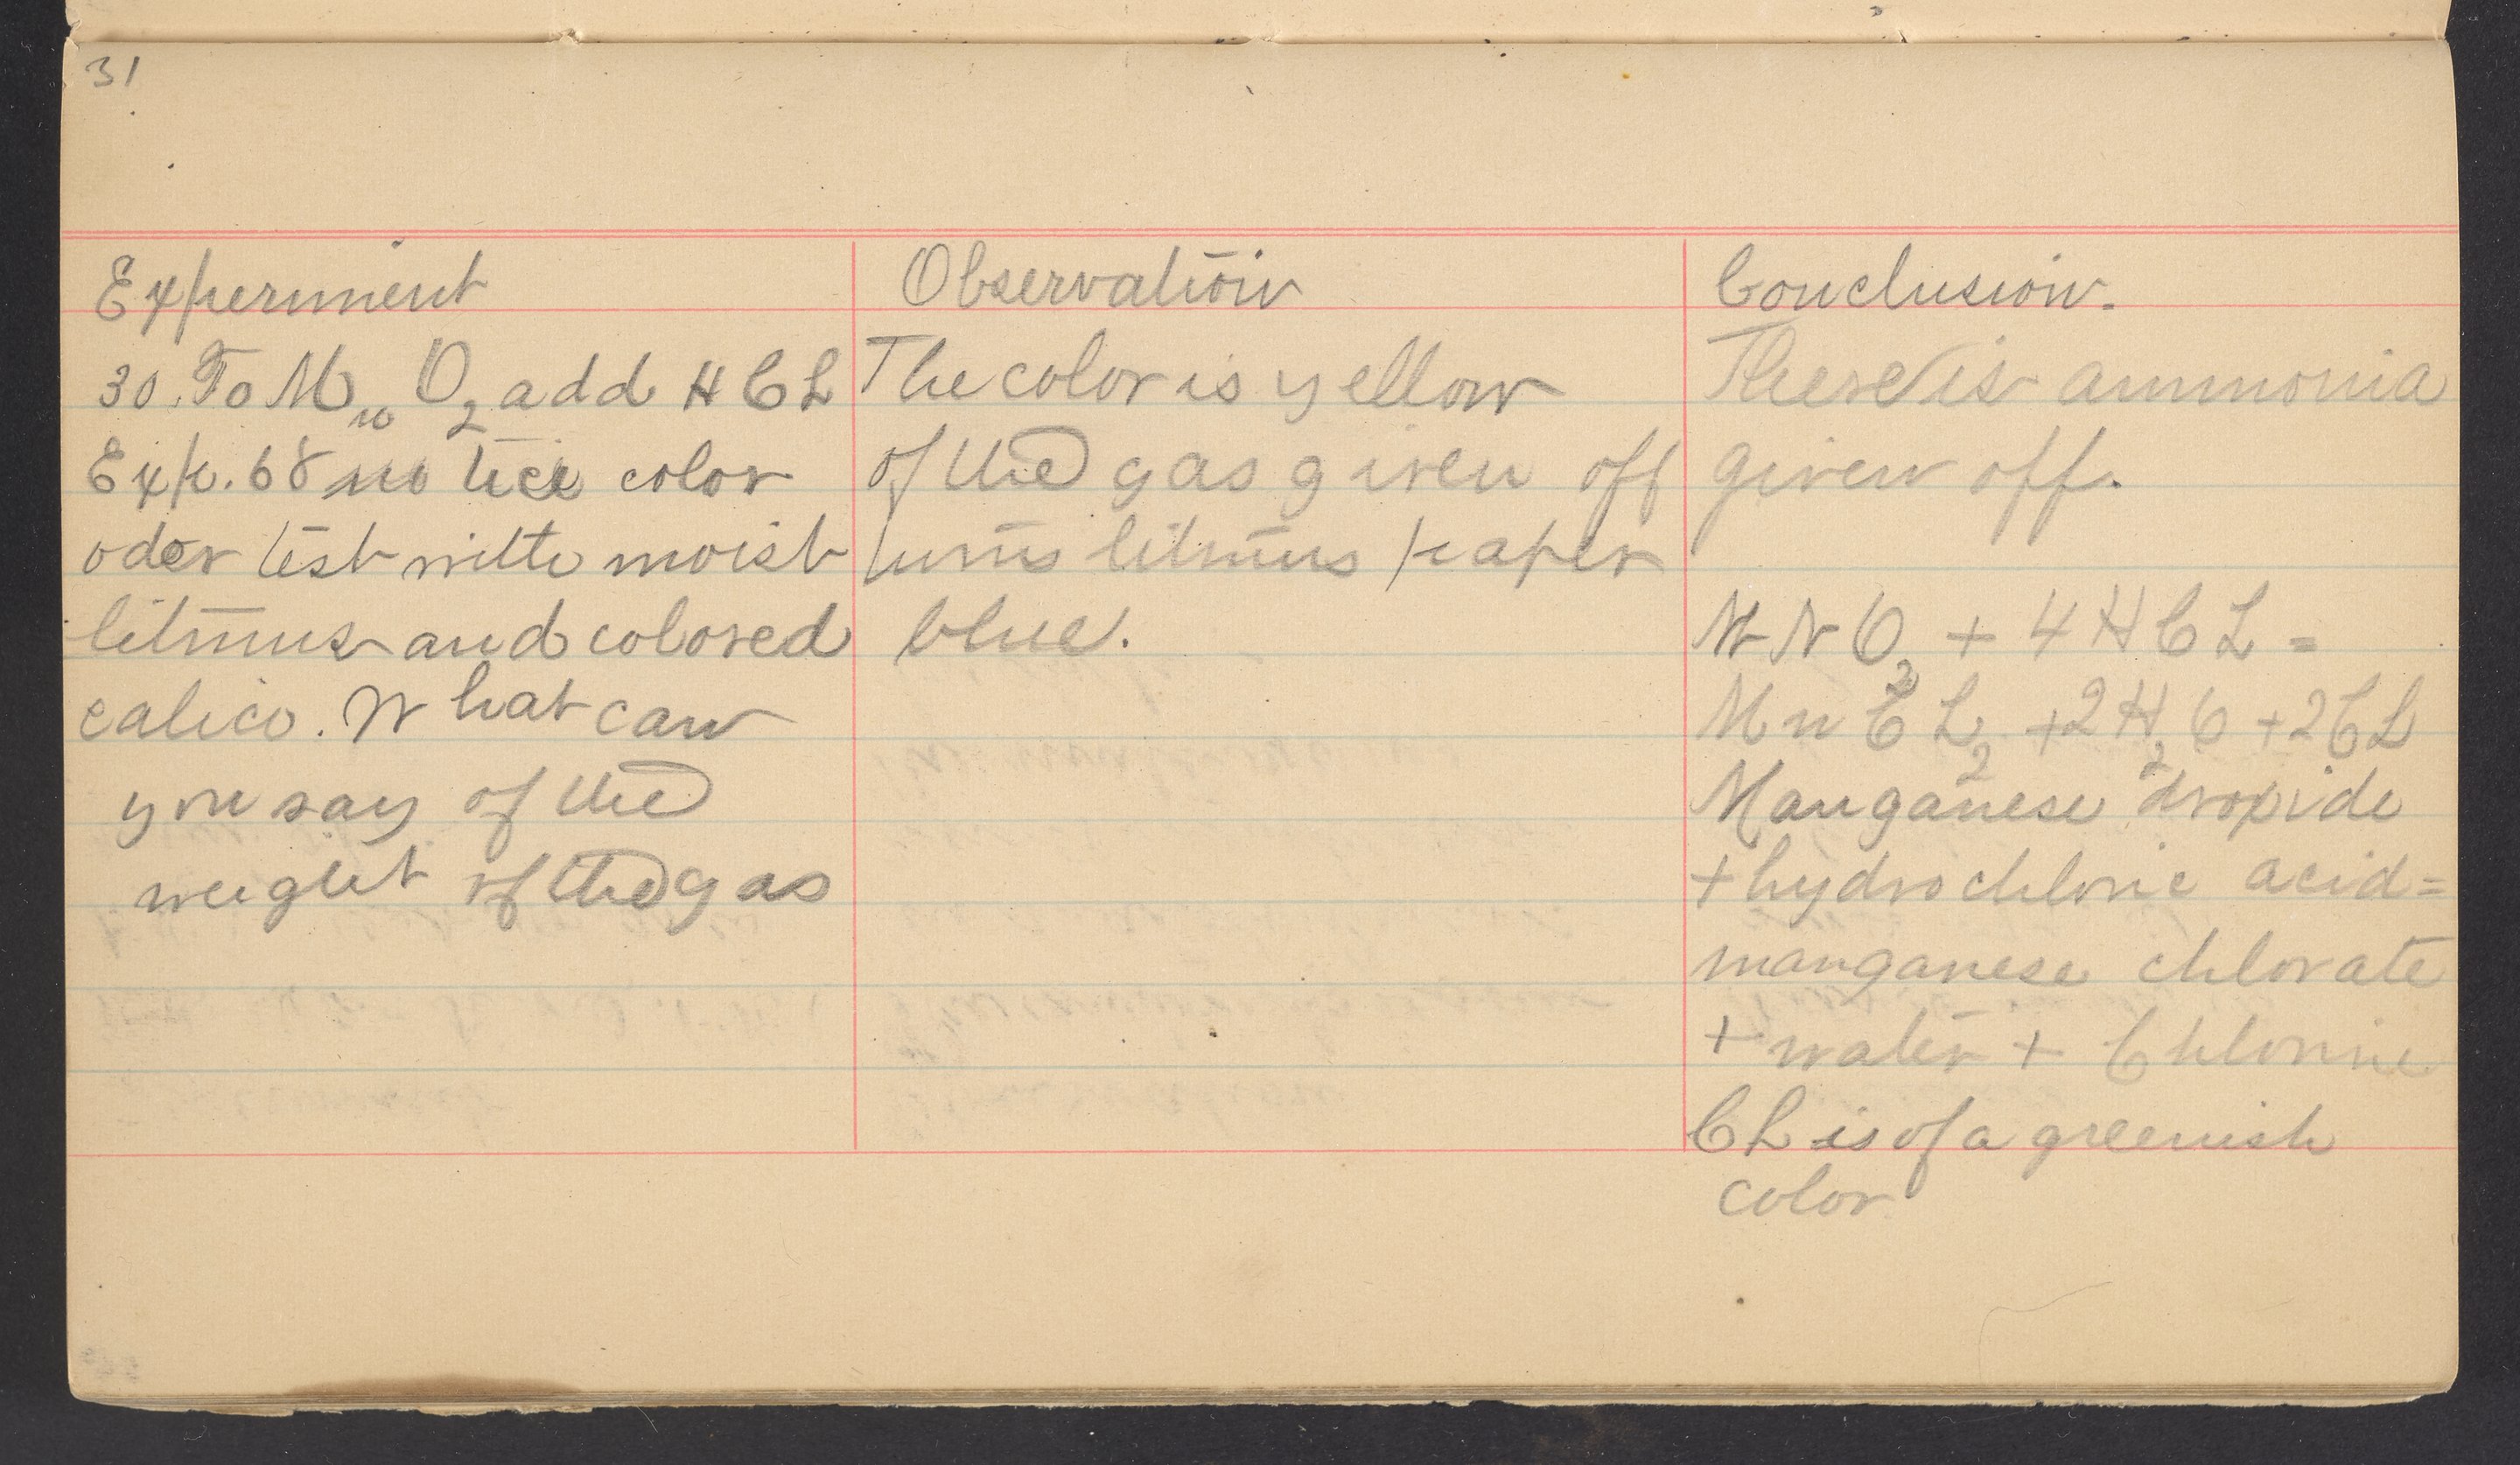 31
Experiment
30. To MnO2 add HCL
Exp. 68 notice color
oder test with moist
litmus and colored
calico. What can
you say of the
weight of the gas
Observation
The color is yellow
of the gas given off
turns litmus paper
blue.
Conclusion.
There is ammonia
given off.
MNO2 + 4HCL =
MnCL2 + 2H2O + 2CL
Manganese droxide
+ hydrochloric acid =
manganese chlorate
+ water + Chlorine
CL is of a greenish
color